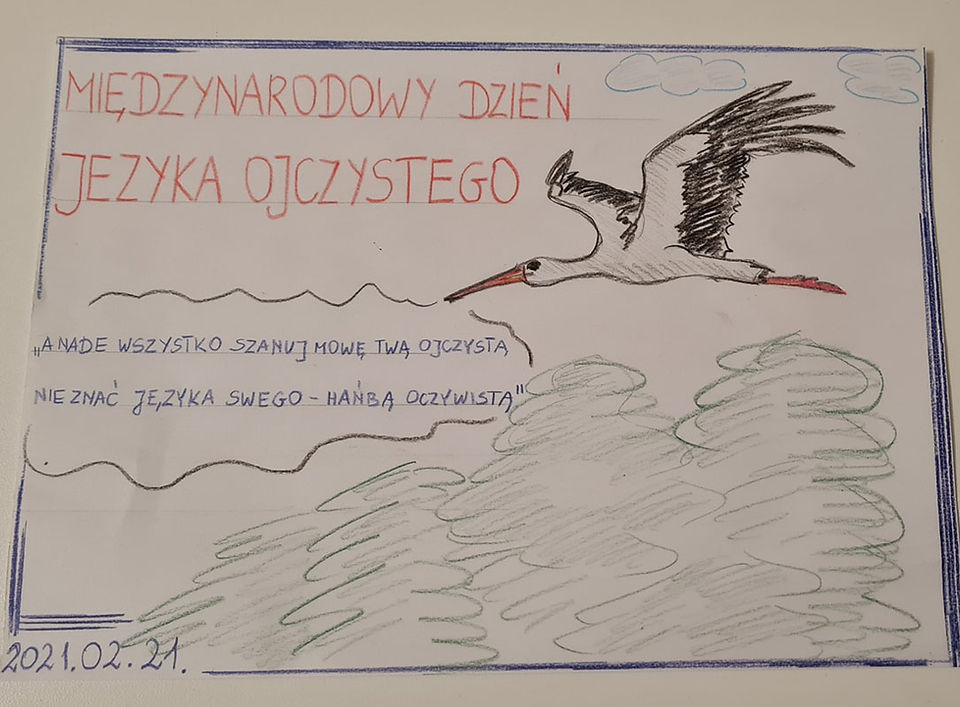 MIĘDZYNARODOWY DZIEŃ
JEZYKA OJCZYSTEGO
„A NADE WSZYSTKO SZANUJ MOWĘ TWĄ OJCZYSTĄ
NIE ZNAĆ JĘZYKA SWEGO - HAŃBĄ OCZYWISTĄ"
2021.02.21.